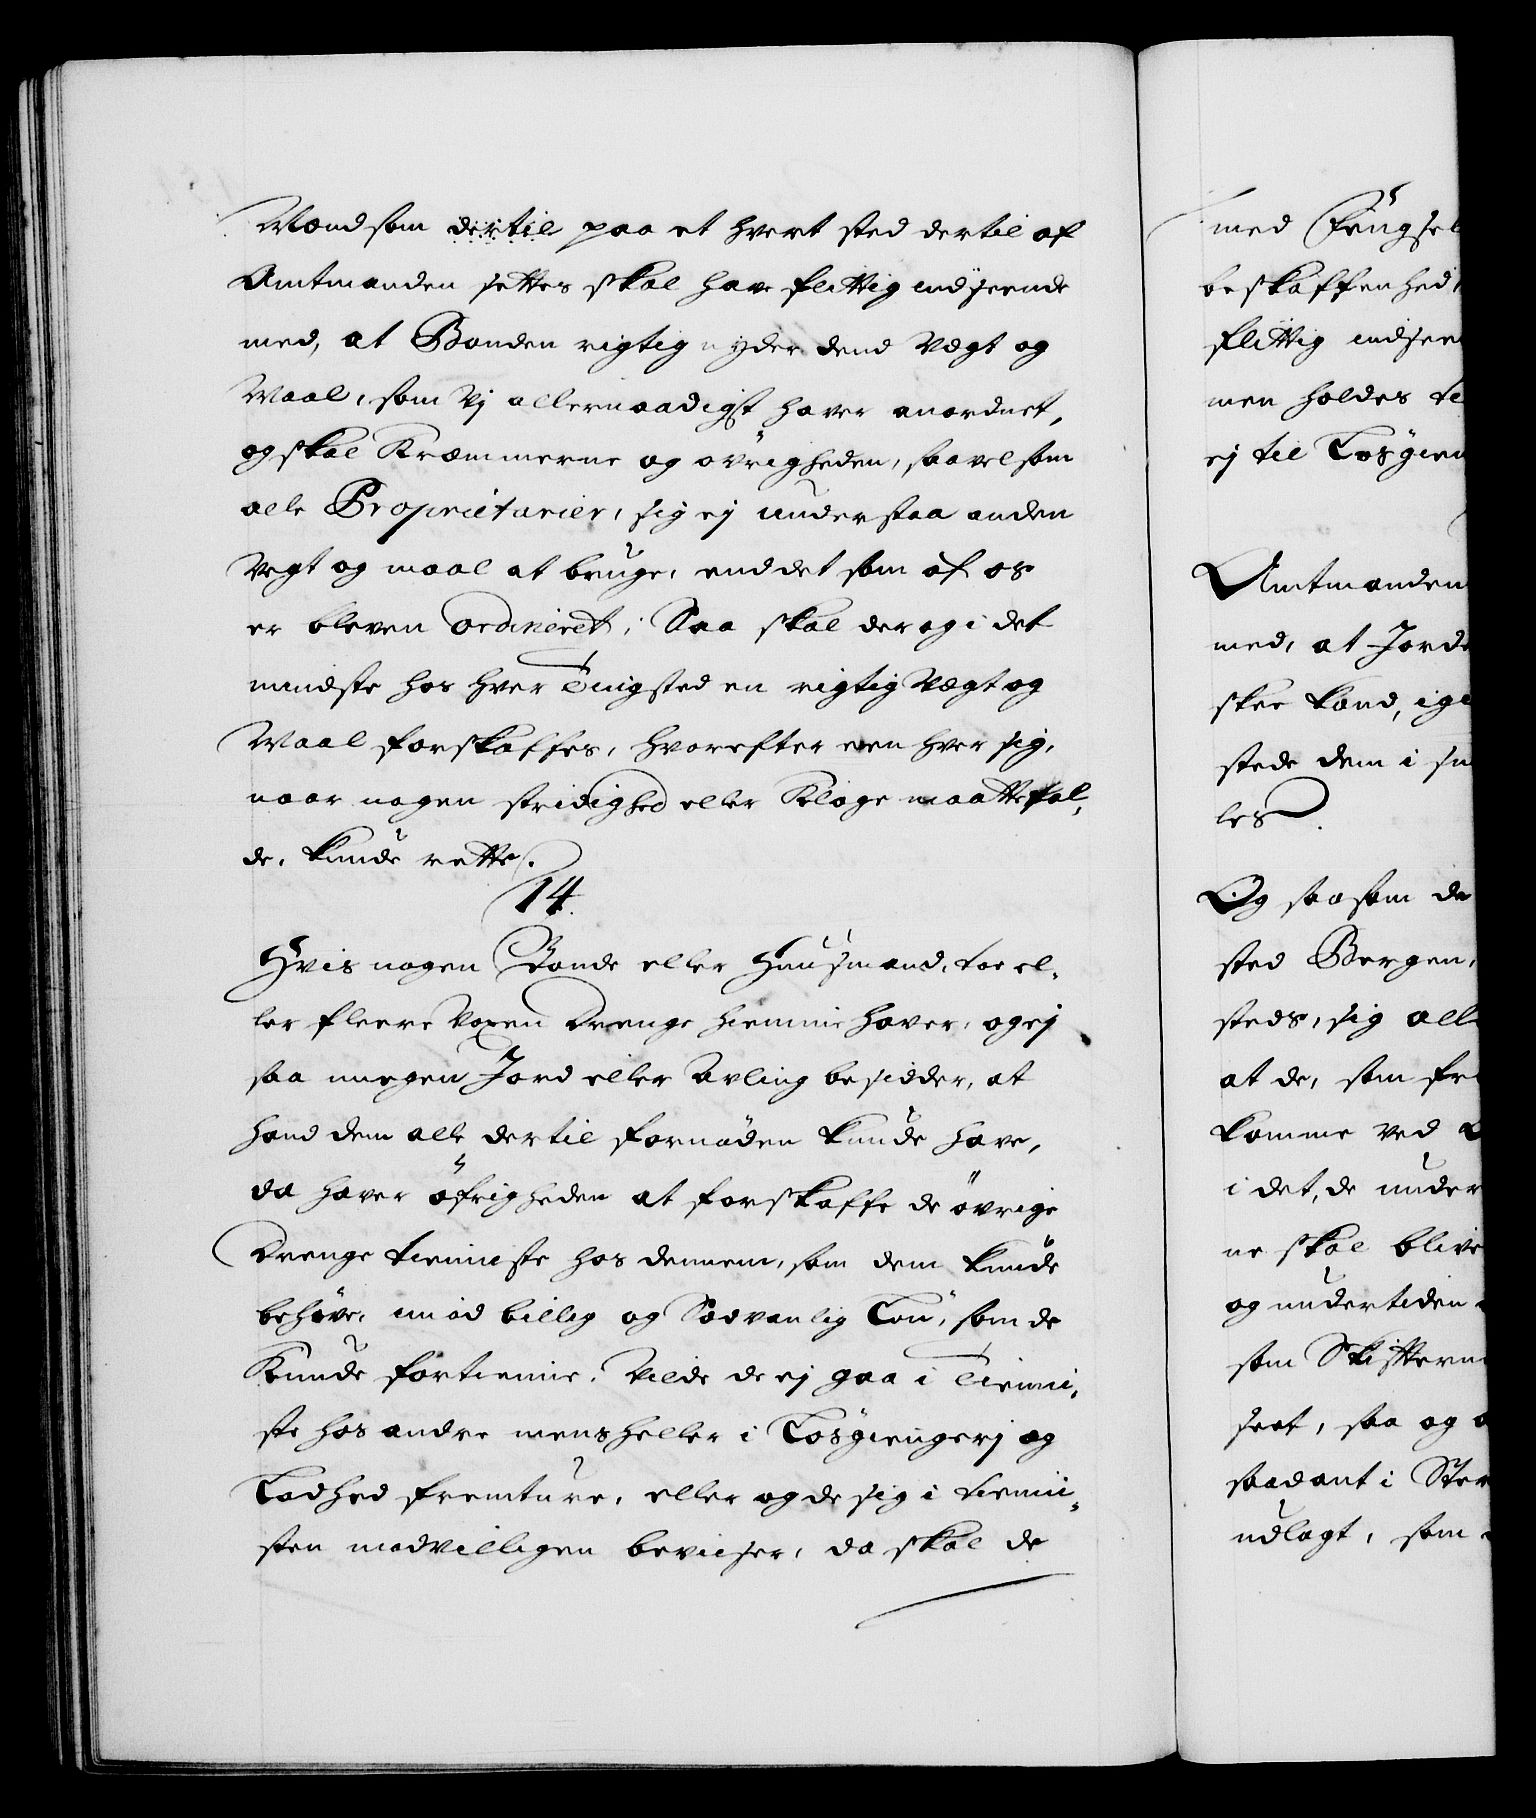 Mænd som dertil paa et hvert sted dertil af
Amtmanden settes skal have flittig indseende
med, at Bonden rigtig nyder dend Vægt og
Maal, som Vj allernaadigst haver anordnet,
og skal Kræmmerne og övrigheden, saavel som
alle Proprietarier, sig ej understaa anden
Vegt og maal at bruge, end det som af os
er bleven ordineret; Saa skal der og i det
mindste hos hver Tingsted en rigtig Vægt og
Maal forskaffes, hvorefter een hver sig,
naar nogen stridighed eller Klage maatte fal,
de, kunde rette.
14.
Hvis nogen Bonde eller Huusmand, toe el,
ler fleere Voxen Drenge hiemme haver, og ej
saa megen Jord eller Avling besidder, at
hand dem alle dertil fornöden kunde have,
da haver öfrigheden at forskaffe de övrige
Drenge tienniste hos dennem, som dem kunde
behöve, imod billig og Sædvanlig Lön, som de
Kunde fortienne. Vilde de ej gaa i Tienni,
ste hos andre mens heller i Lösgiengerj og
Ladhed fremture, eller og de sig i tienni,
sten modvilligen beviser, da skal de
med Fengsel
beskaffenhed,
flittig indsee
men holdes
ej til Lösgien
Amtmanden
med, at Jord
skee kand,
stede dem i
les.
Og saasom de
sted Bergen,
steds, sig all
at de, som
komme ved
i det, de under
ne skal blive
og undertiden
som Skifterne
seet, saa og
saadant i Ster
udlagt, som